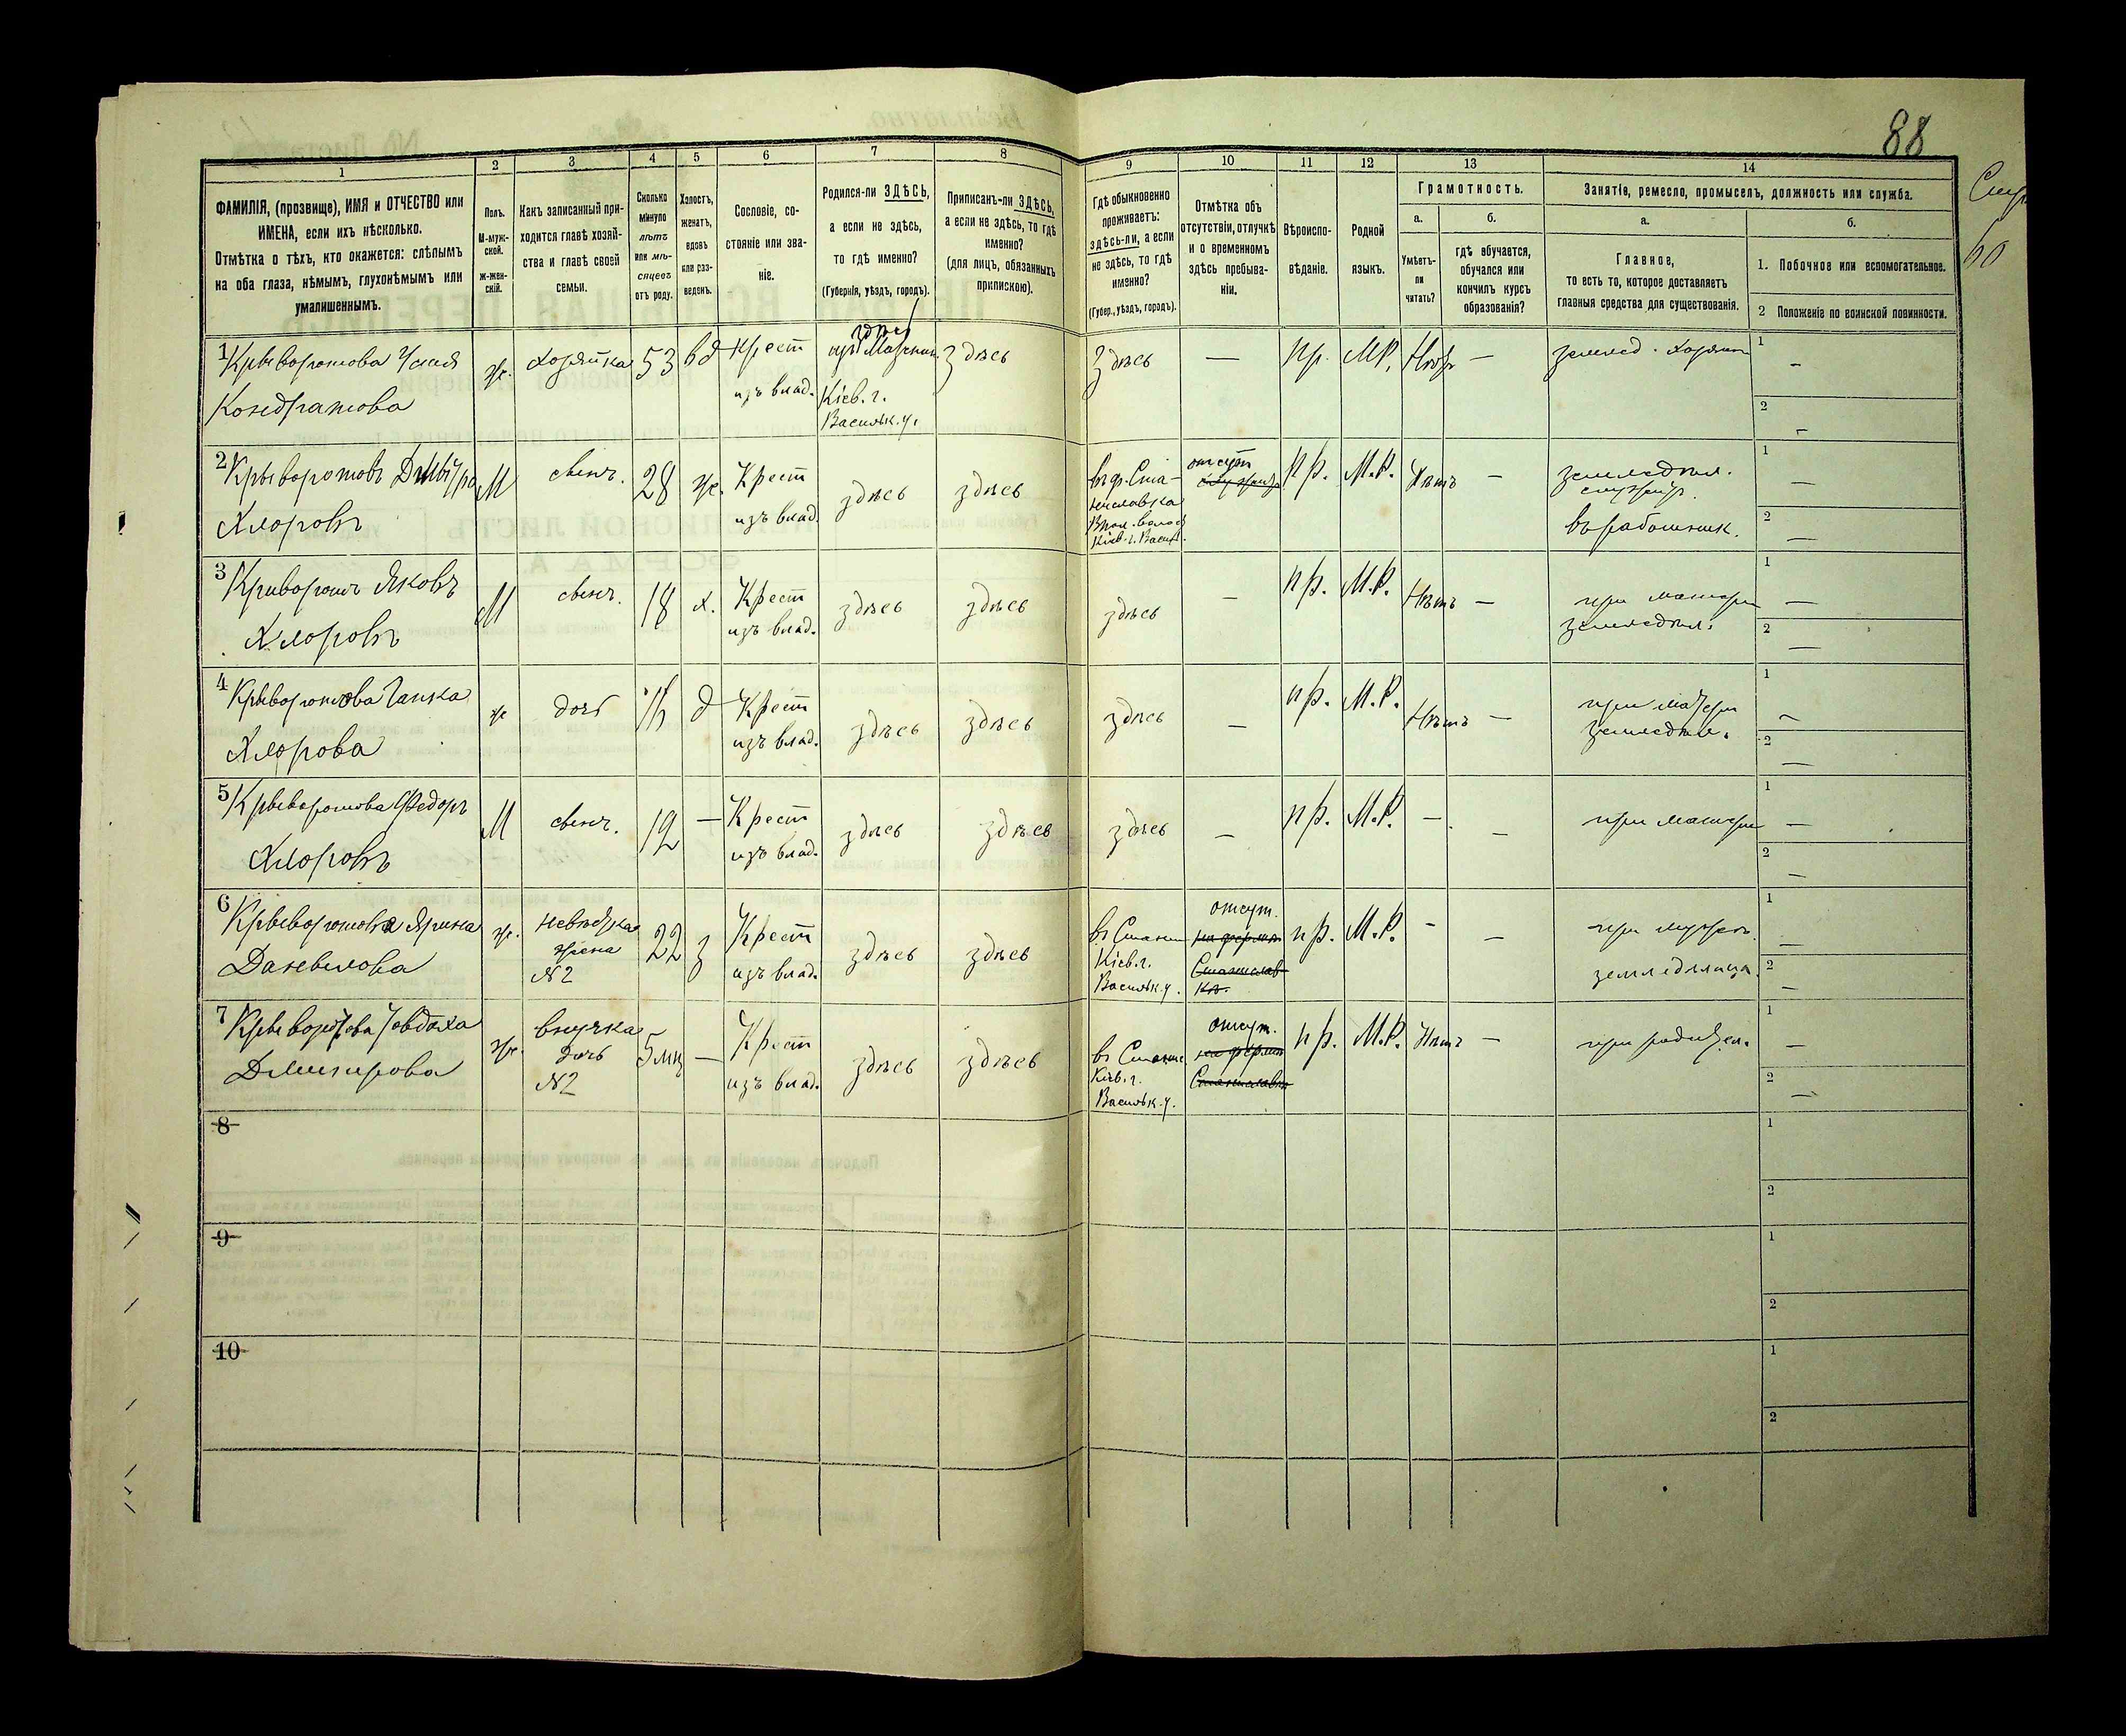 88
1
2
3
4
5
6
7
8
9
10
11
12
13
14
ФАМИЛІЯ, (прозвище), ИМЯ и ОТЧЕСТВО или
ИМЕНА, если ихъ нѣсколько.
Отмѣтка о тѣхъ, кто окажется: слѣпымъ
на оба глаза, нѣмымъ, глухонѣмымъ или
умалишеннымъ.
Полъ.
М-муж-
ской.
Ж-жен-
скій.
Какъ записанный при-
ходится главѣ хозяй-
ства и главѣ своей
семьи.
Сколько
минуло
лѣтъ
или мѣ-
сяцевъ
отъ роду.
Холостъ,
женатъ,
вдовъ
или раз-
веденъ.
Сословіе, со-
стояніе или зва-
ніе.
Родился-ли ЗДѢСЬ,
а если не здѣсь,
то гдѣ именно?
(Губернія, уѣздъ, городъ).
Приписанъ-ли ЗДѢСЬ,
а если не здѣсь, то гдѣ
именно?
(для лицъ, обязанныхъ
припискою).
Гдѣ обыкновенно
проживаетъ:
здѣсь-ли, а если
не здѣсь, то гдѣ
именно?
(Губер., уѣздъ, городъ).
Отмѣтка объ
отсутствіи, отлучкѣ
и о временномъ
здѣсь пребыва-
ніи.
Вѣроиспо-
вѣданіе.
Родной
языкъ.
Грамотность.
а.
б.
Умѣетъ-
ли
читать?
гдѣ обучается,
обучался или
кончилъ курсъ
образованія?
Занятіе, ремесло, промыселъ, должность или служба.
а.
б.
Главное,
то есть то, которое доставляетъ
главныя средства для существованія.
1. Побочное или вспомогательное.
2 Положеніе по воинской повинности.
60
1
Кондратова
ж.
хозяйка
53
вд
Крест
изъ влад.
Кіев. г.
Васильк. у.
здѣсь
здѣсь
—
пр.
М.Р.
—
1 —
2 —
2 Крыворотовъ
Хлоровъ
М
сынъ.
28
ж.
Крест
изъ влад.
здѣсь
здѣсь
въ ф. Ста-
ниславка
отсут
пр.
М.Р.
Нѣтъ
—
земледѣл.
въ работник.
1 —
2 —
3 Яковъ
Хлоровъ
М
сынъ.
18
х.
Крест
изъ влад.
здѣсь
здѣсь
здѣсь
—
пр.
М.Р.
Нѣтъ
—
при матери
земледѣл.
1 —
2 —
4 Крыворотова Ганка
Хлорова
ж
дочь
д
Крест
изъ влад.
здѣсь
здѣсь
здѣсь
—
пр.
М.Р.
Нѣтъ
—
при матери
земледѣл.
1 —
2 —
5 Крыворотова Федоръ
Хлоровъ
М
сынъ.
12
—
Крест
изъ влад.
здѣсь
здѣсь
здѣсь
—
пр.
М.Р.
—
—
при матери
1 —
2 —
6 Крыворотова Ярина
Данылова
ж.
невѣстка
жена
№2
22
з
Крест
изъ влад.
здѣсь
здѣсь
Кіев. г.
Васильк. у.
отсут.
на фермѣ
Станислав
кѣ.
пр.
М.Р.
—
—
при мужѣ
земледѣлица.
1 —
2 —
7 Крыворотова Явдоха
Дмитрова
ж.
внучка
дочь
№2
5 мц
—
Крест
изъ влад.
здѣсь
здѣсь
Кіев. г.
Васильк. у.
отсут.
на фермѣ
пр.
М.Р.
Нѣтъ
—
при родител.
1 —
2 —
8
1
2
9
1
2
10
1
2